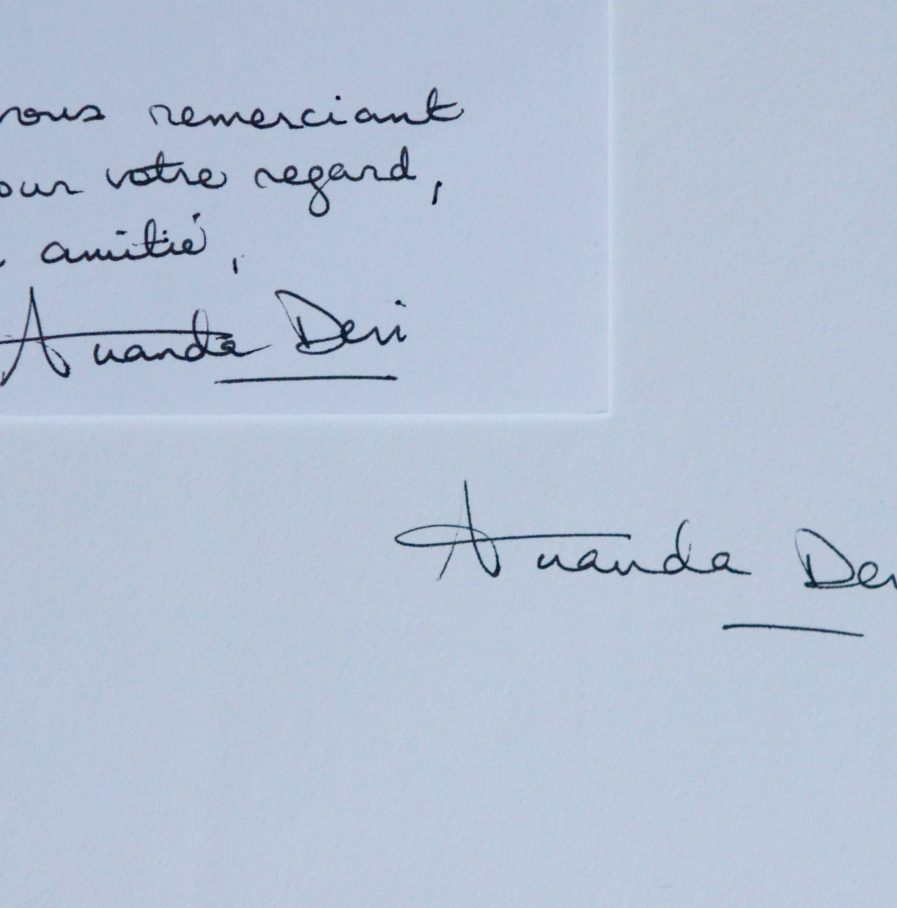 vous remerciant
our votre regard,
amitié,
Ananda Devi
Ananda Dev